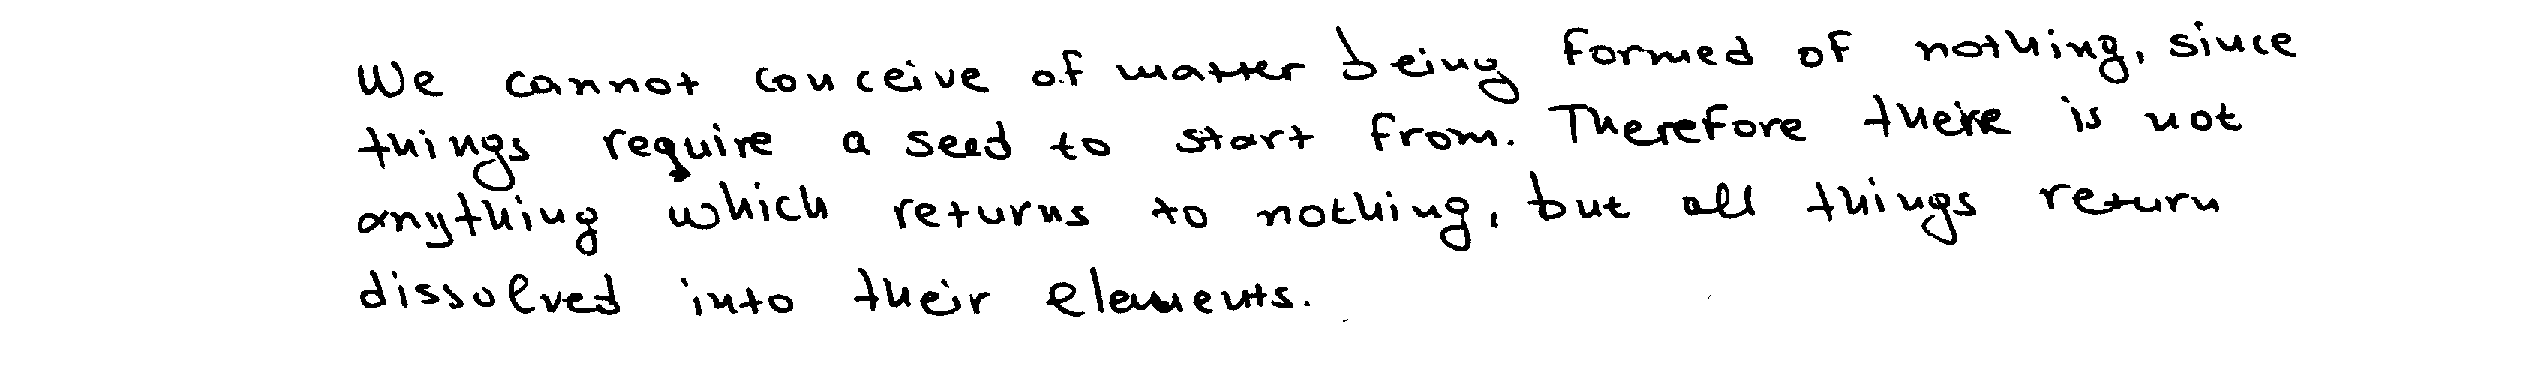 We cannot conceive of matter being formed of nothing, since
things require a seed to start from. Therefore there is not
anything which returns to nothing, but all things return
dissolved into their elements.